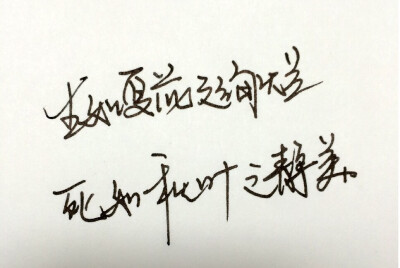 生如夏花之绚烂
死如秋叶之静美。